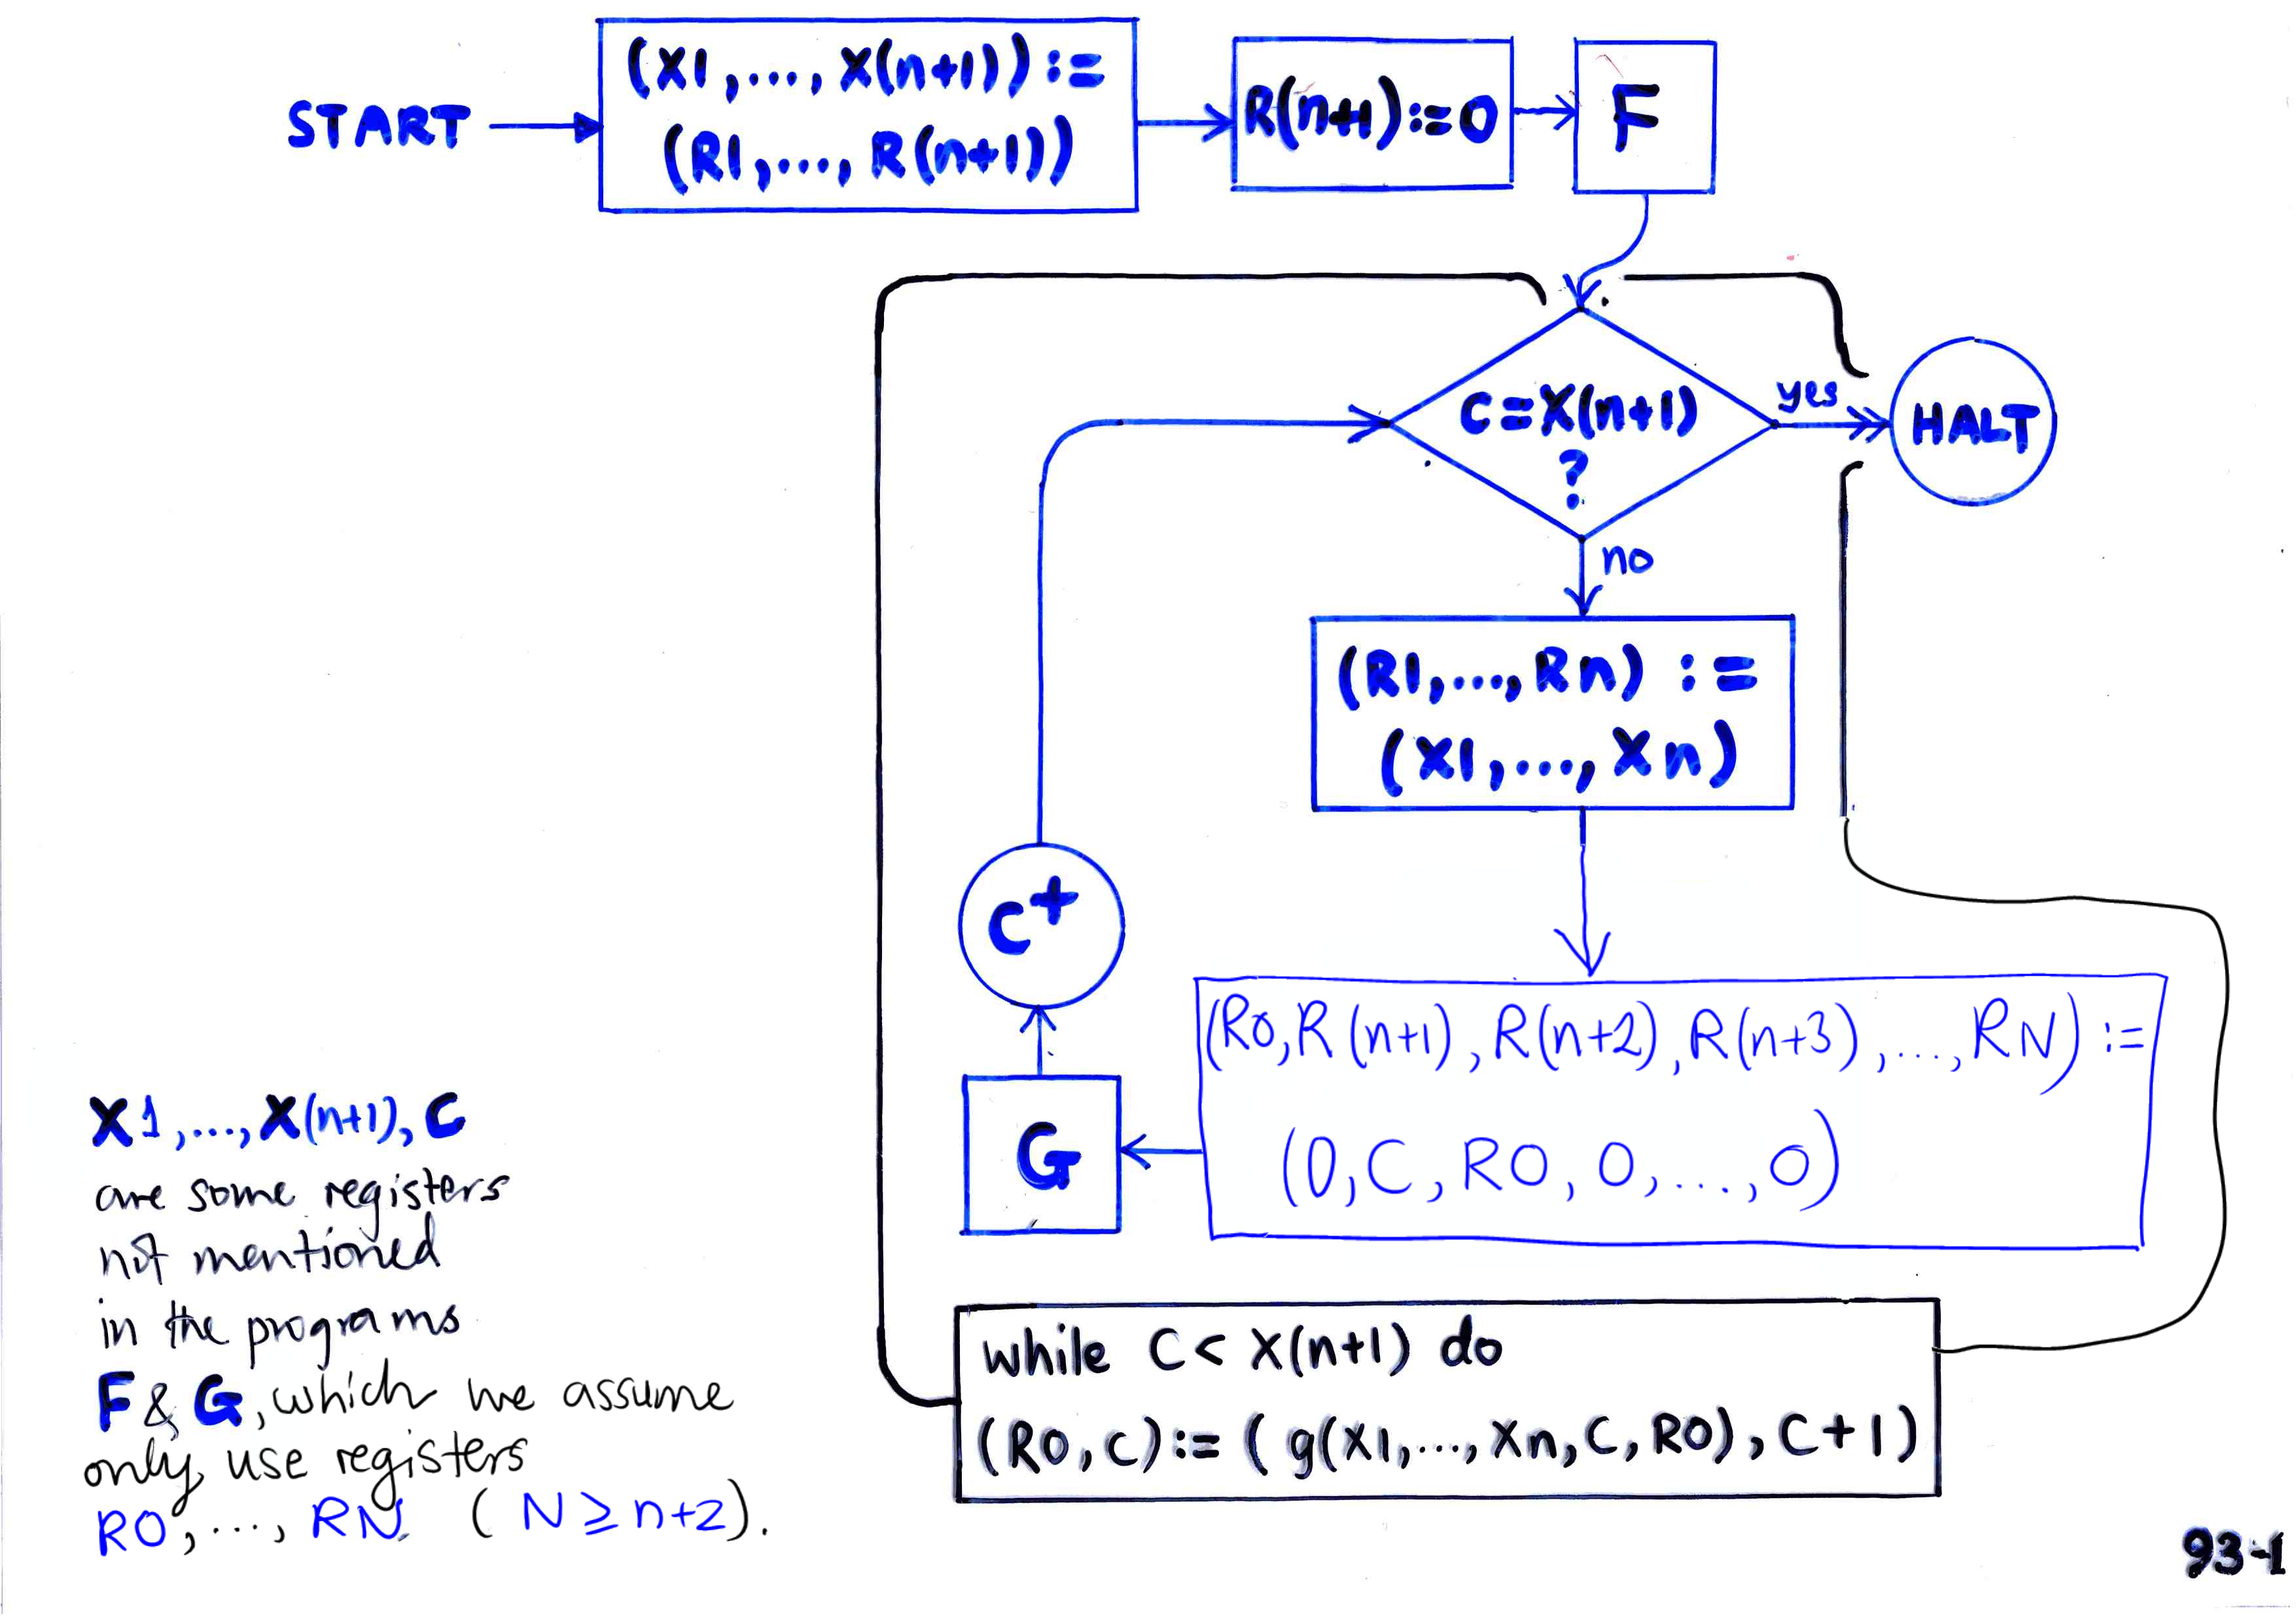 START
(X1,...., X(n+1)) :=
(R1,...., R(n+1))
R(n+1):=0
F
C=X(n+1)
?
yes
HALT
no
(R1,...,Rn) :=
(X1,..., Xn)
C+
(R0,R(n+1),R(n+2),R(n+3),...,RN) :=
(0,C,R0,0,...,0)
G
while C < X(n+1) do
(R0,C):= ( g(X1,...,Xn,C,R0), C+1)
X1,...,X(n+1),C
are some registers
not mentioned
in the programs
F & G, which we assume
only use registers
R0,..., RN (N ≥ n+2).
93-1